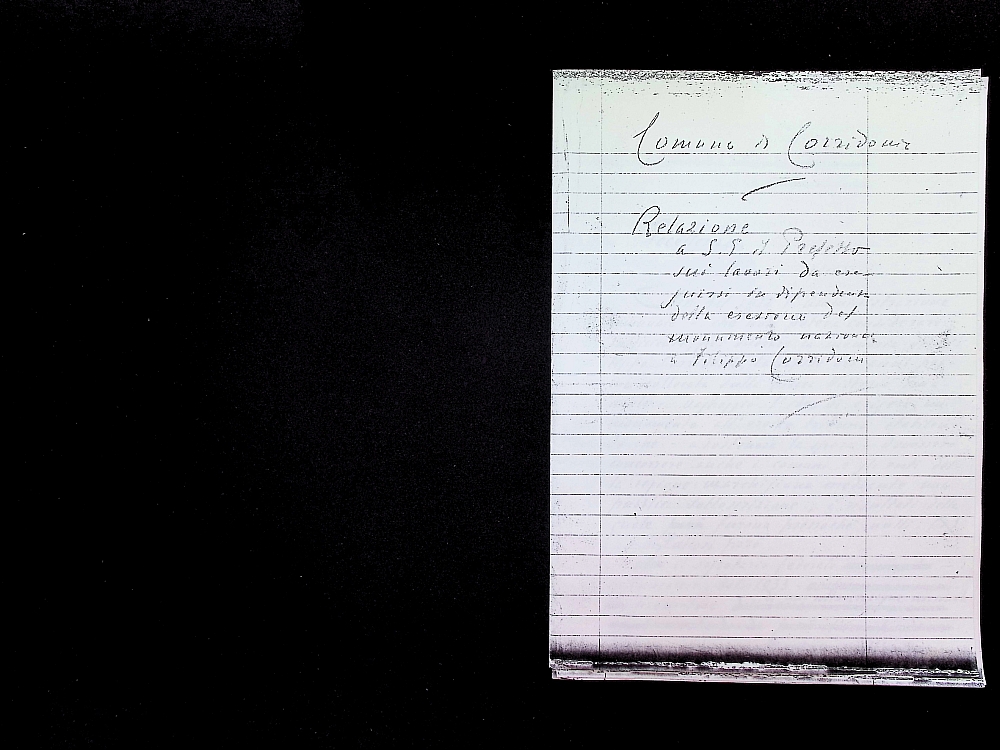 Comune di Corridonia
Relazione
a S. E. il Prefetto
sui lavori da ese-
guirsi in dipendenza
della erezione del
monumento nazionale
a Filippo Corridoni